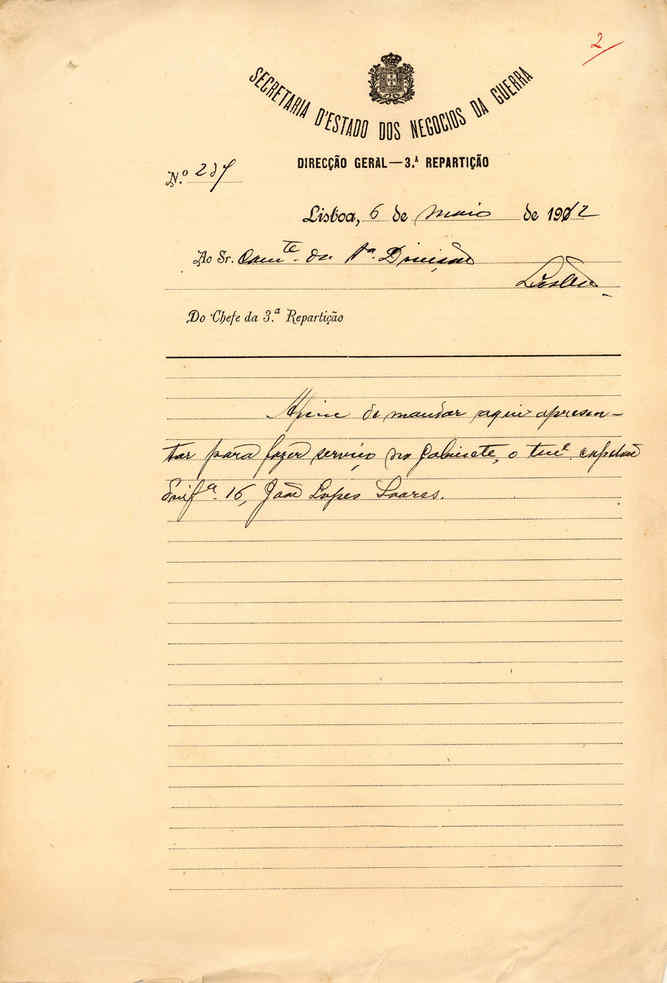 2
SECRETARIA D'ESTADO DOS NEGOCIOS DA GUERRA
DIRECÇÃO GERAL—3.ª REPARTIÇÃO
N.º 237
Lisboa, 6 de maio de 1912
Ao Sr. Comte. da 1ª. Divisão
Lisboa.
Do Chefe da 3.ª Repartição
de mandar aqui apresen-
tar para fazer serviço no gabinete, o tene. capelão
Inifª. 16, João Lopes Soares.